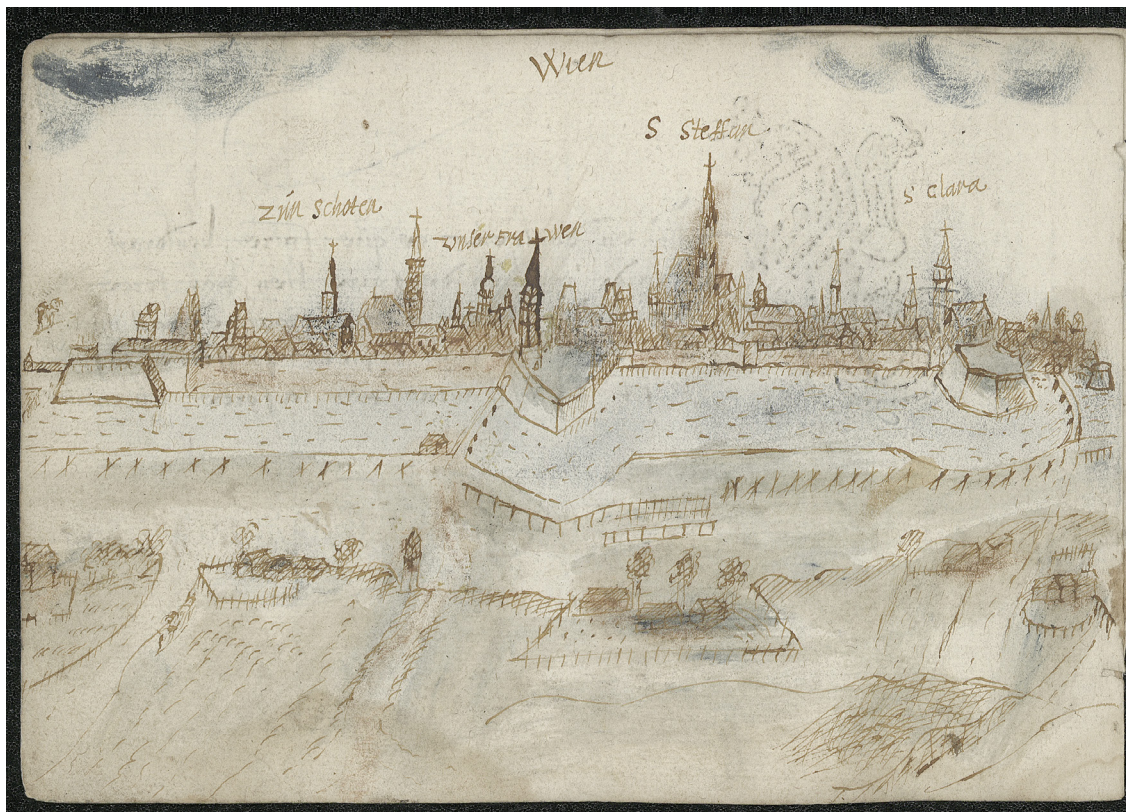 Wien
S Steffan
S Clara
Zún Schoten
Unser Frawen